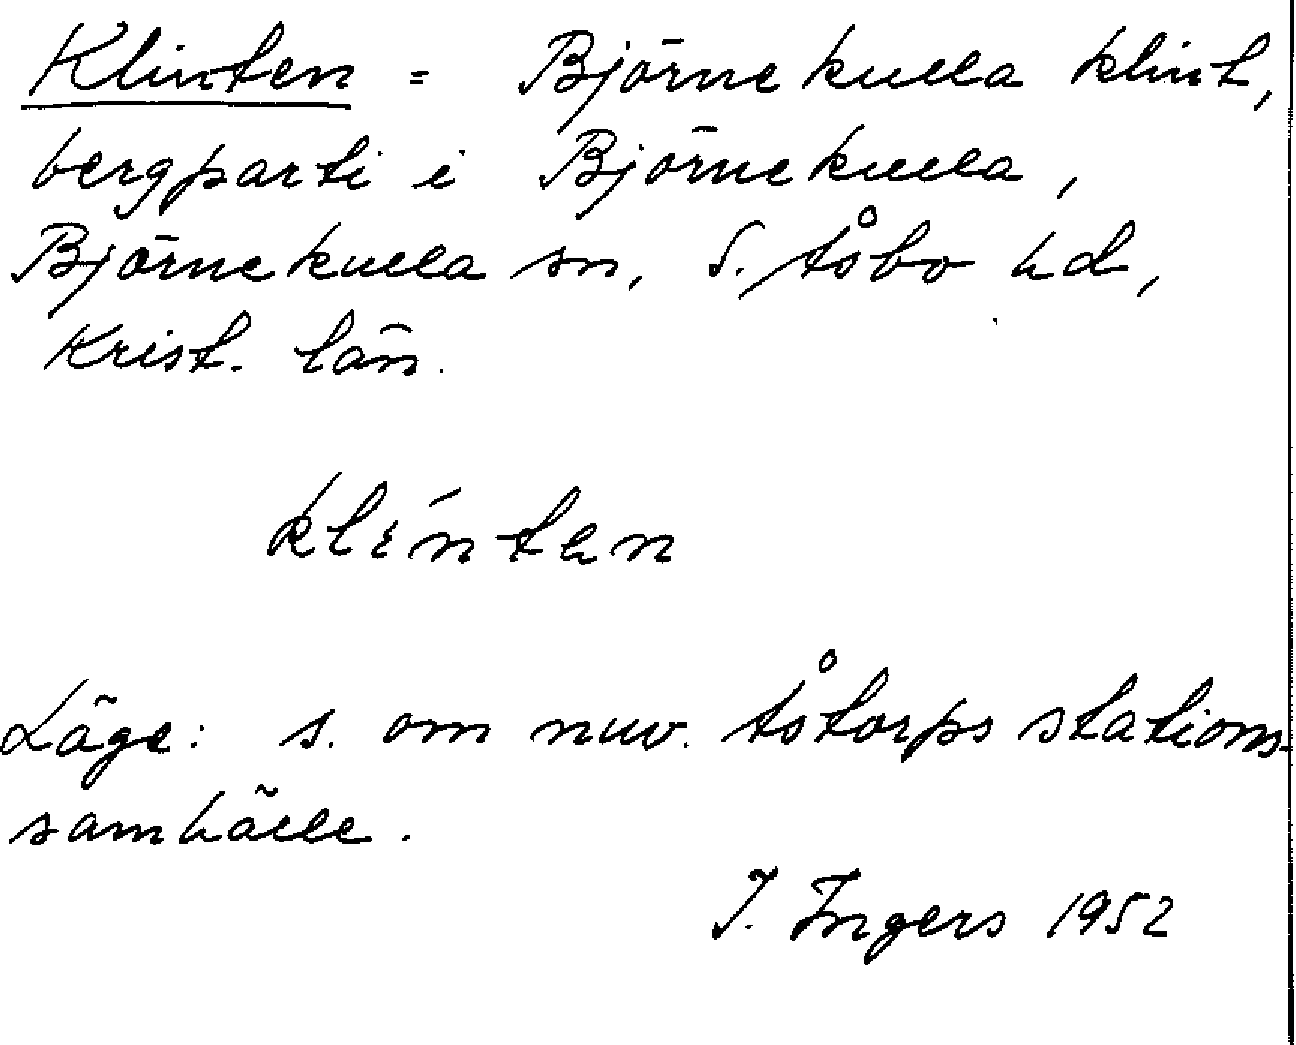 Klinten = Björnekulla klint,
bergparti i Björnekulla,
Björnekulla sn, S. Åsbo hd,
Krist. län.
klínten
Läge: s. om nuv. Åstorps stations-
samhälle.
I. Ingers 1952